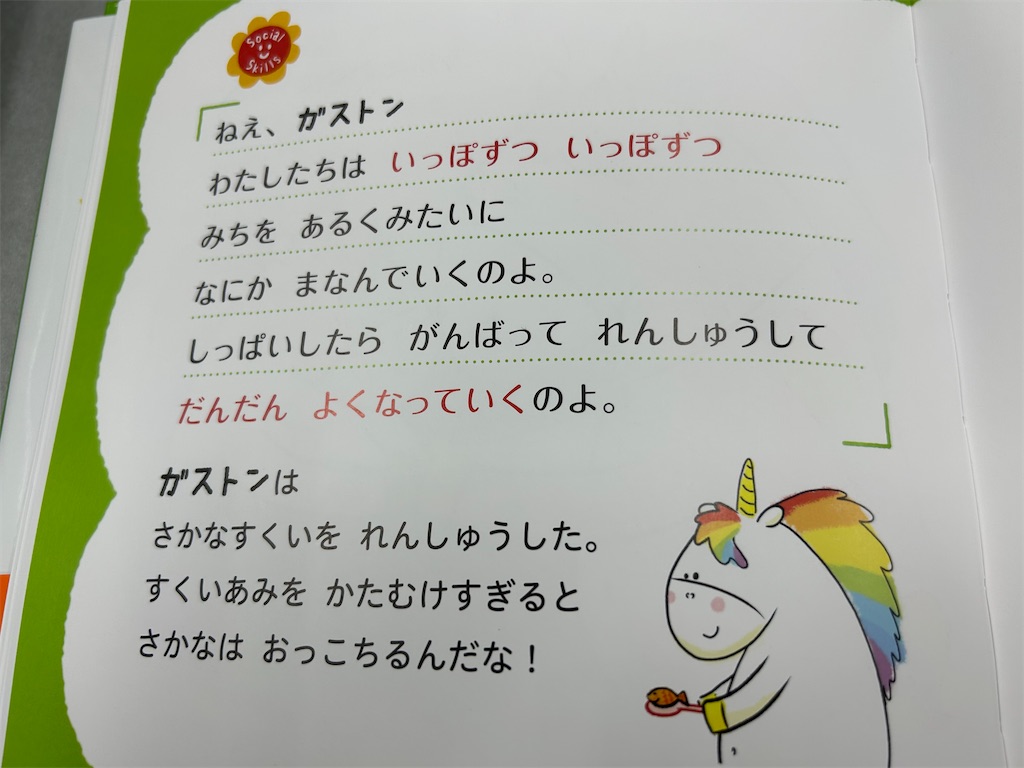 Social
Skills
「ねえ、ガストン
わたしたちは いっぽずつ いっぽずつ
みちを あるくみたいに
なにか まなんでいくのよ。
しっぱいしたら がんばって れんしゅうして
だんだん よくなっていくのよ。」
ガストンは
さかなすくいを れんしゅうした。
すくいあみを かたむけすぎると
さかなは おっこちるんだな！